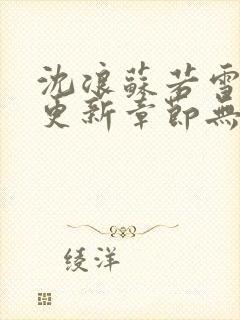 沈浪蘇若雪
更新章節無
绫洋